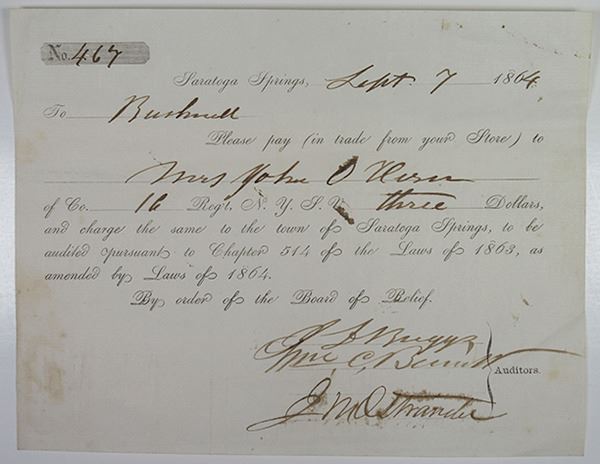 No. 467
Saratoga Springs, Sept. 7 1864
To Bushnell
Please pay (in trade from your Store) to
Mrs John O
of Co. 16 Reg't, N. Y. S. V. three Dollars,
and charge the same to the town of Saratoga Springs, to be
audited pursuant to Chapter 514 of the Laws of 1863, as
amended by Laws of 1864.
By order of the Board of Relief.
Briggs
C.
Auditors.
J. M. Ostrander